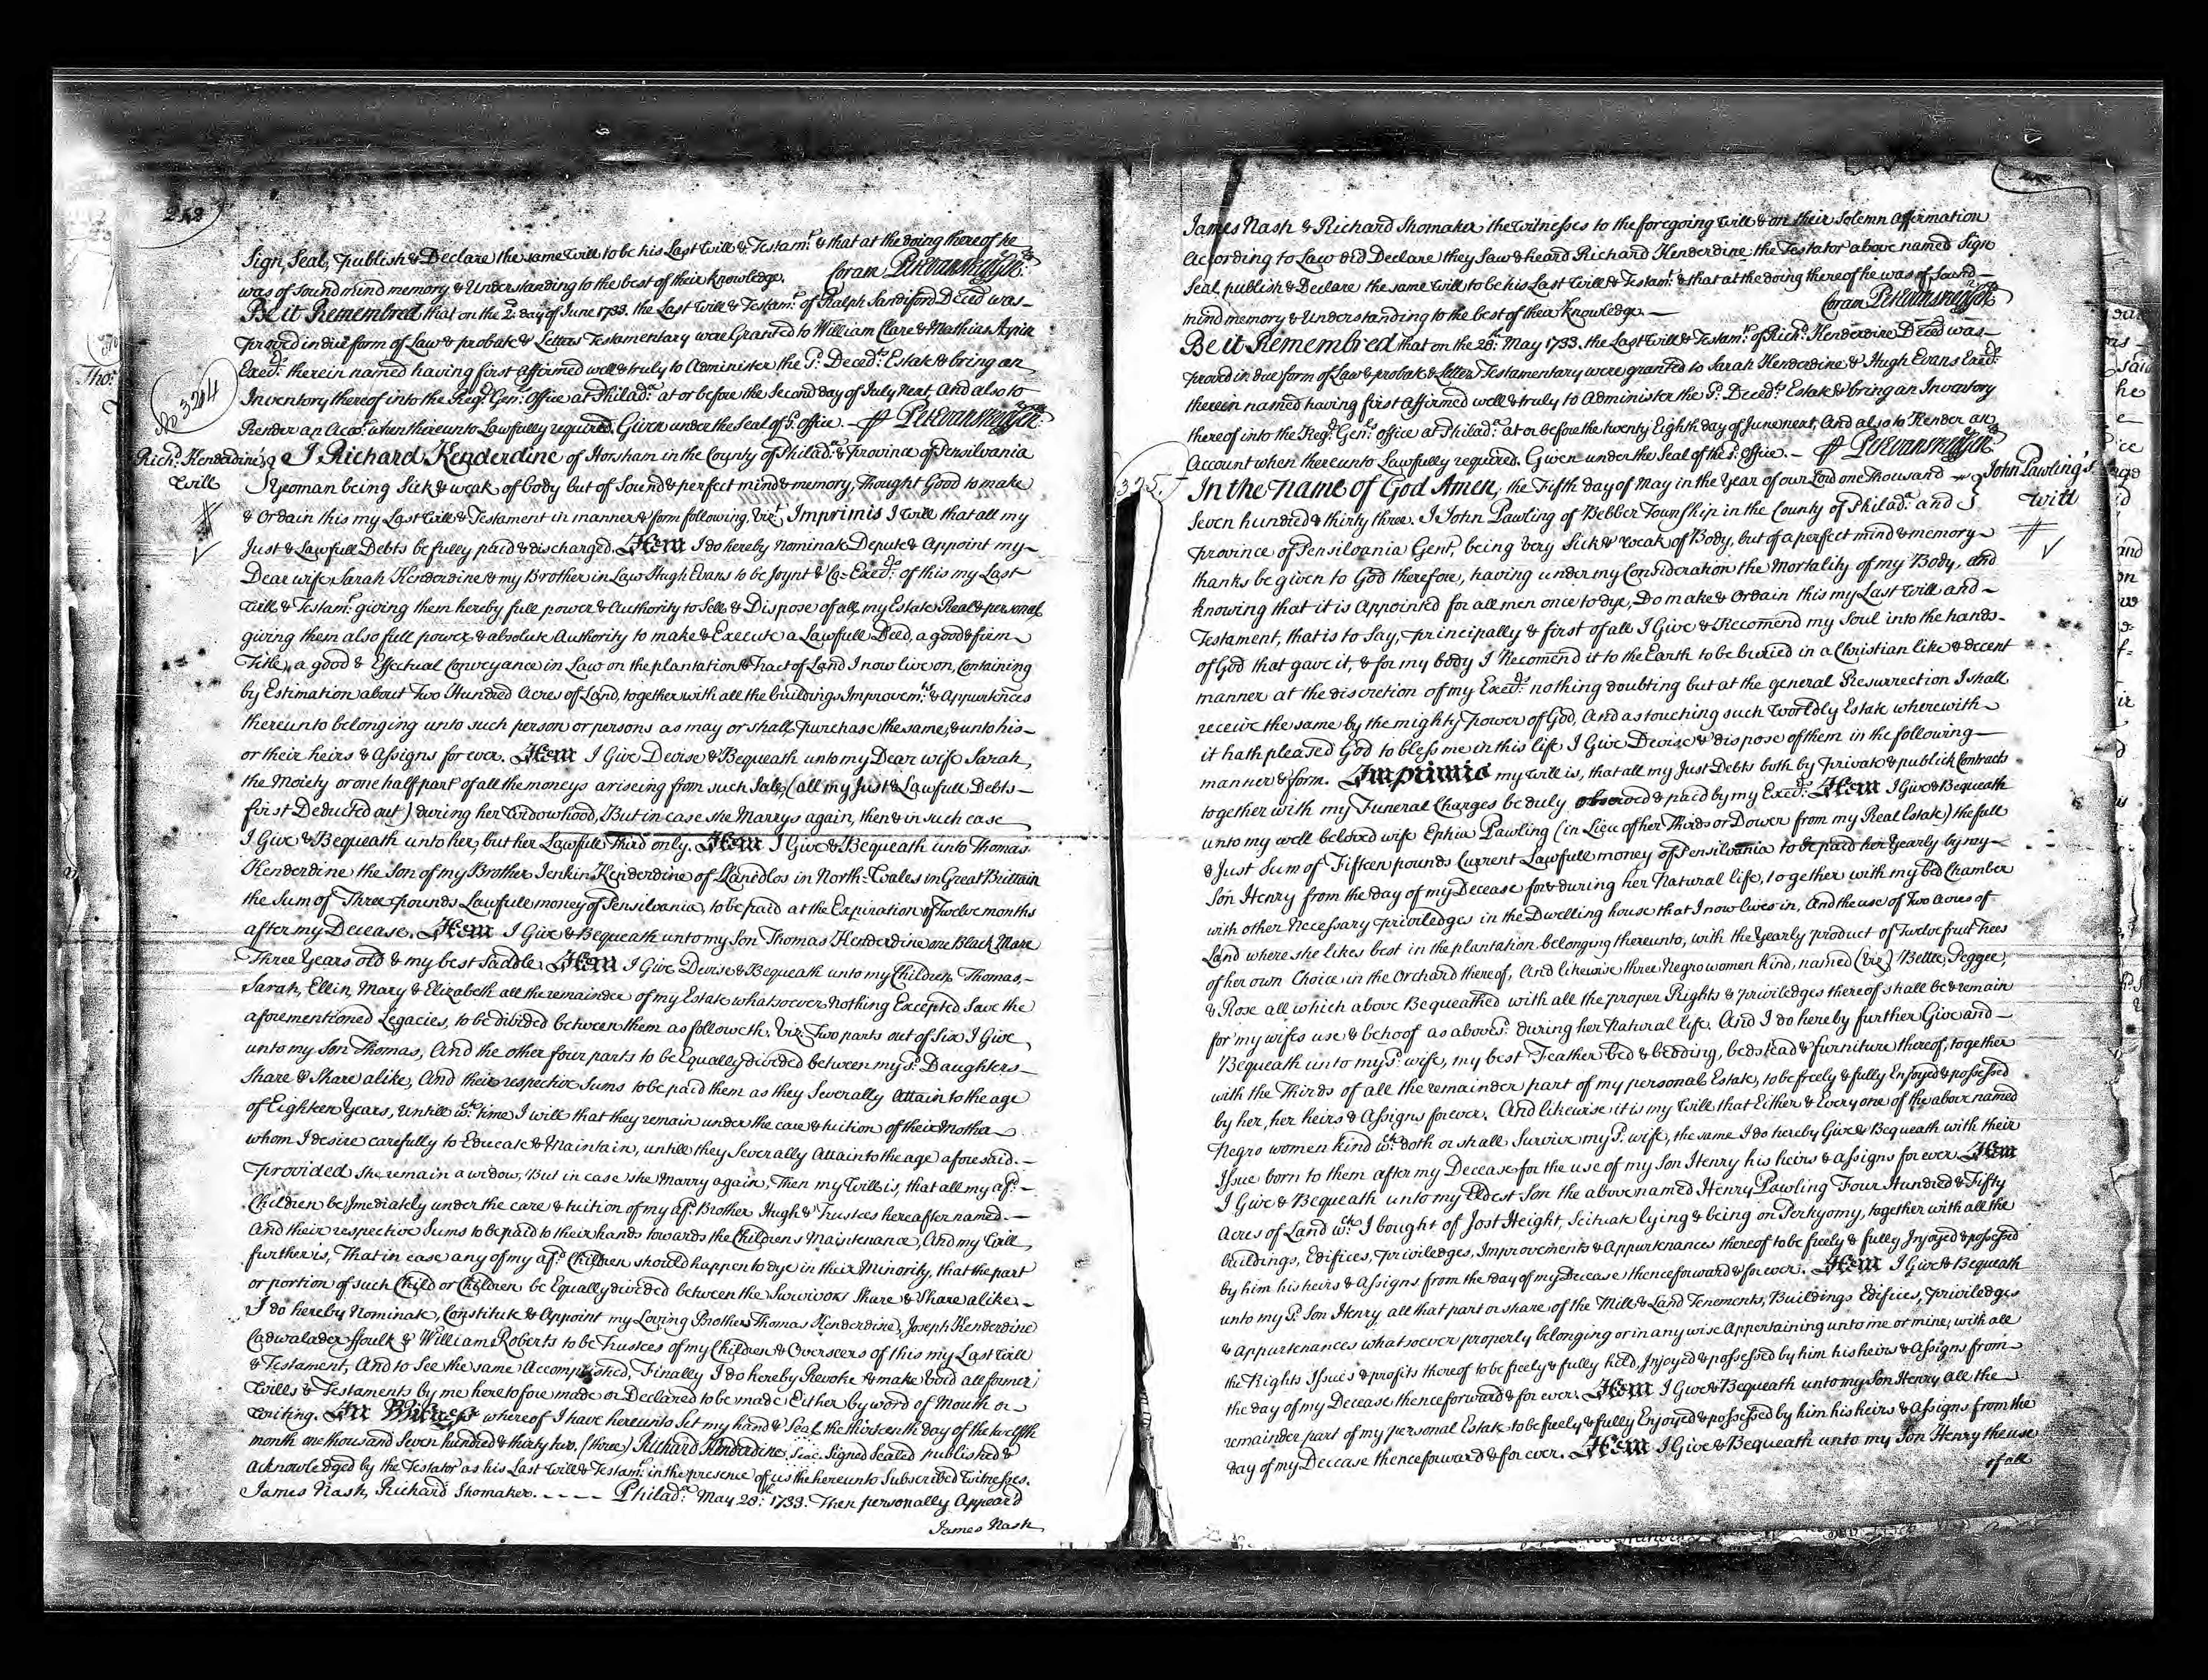 Sign, Seal, publish & Declare the same Will to be his Last Will & Testamt. & that at the doing thereof he
was of sound mind memory, & Understanding to the best of their Knowledge. Coram Pet Evans Reg Genl.
Be it Remembred that on the 2d. day of June 1733. the Last Will & Testamt. of Ralph Sandiford Deced was
proved in due form of Law & probate & Letters Testamentary were Granted to William Clare & Mathias Aspin
Exers. therein named having first affirmed well & truly to Administer the sd. Deceds. Estate & bring an
Inventory thereof into the Regr. Genls. Office at Philada. at or before the Second day of July Next, And also to
Render an Accot. when thereunto Lawfully required. Given under the Seal of sd. office. Pet Evans Reg Genl.
No 324
Richd. Kenderdine's
Will
I Richard Kenderdine of Horsham in the County of Philada. & Province of Pensilvania
Yeoman being Sick & weak of body but of Sound & perfect mind & memory, Thought Good to make
& Ordain this my Last Will & Testament in manner & form following, Vizt. Imprimis I Will that all my
Just & Lawfull Debts be fully paid & discharged. Item I do hereby Nominate Depute & Appoint my
Dear wife Sarah Kenderdine & my Brother in Law Hugh Evans to be Joynt & Co=Exers. of this my Last
Will & Testamt. giving them hereby full power & Authority to Sell & Dispose of all my Estate Real & personal,
giving them also full power, & absolute Authority to make & Execute a Lawfull Deed, a good & firm
Title, a good & Effectual Conveyance in Law on the plantation & Tract of Land I now live on, Containing
by Estimation about Two Hundred Acres of Land, together with all the buildings Improvemts. & Appurtences
thereunto belonging unto such person or persons as may or shall purchase the same, & unto his
or their heirs & Assigns for ever. Item I Give Devise & Bequeath unto my Dear wife Sarah,
the Moiety or one half part of all the moneys ariseing from such Sale, (all my Just & Lawfull Debts
first Deducted out) during her Widowhood, But in case she Marrys again, then & in such case
I Give & Bequeath unto her, but her Lawfull Third only. Item I Give & Bequeath unto Thomas
Kenderdine the Son of my Brother Jenkin Kenderdine of Llanidlos in North=Wales in Great Brittain
the Sum of Three pounds Lawfull money of Pensilvania, to be paid at the Expiration of Twelve months
after my Decease. Item I Give & Bequeath unto my Son Thomas Kenderdine one Black Mare
Three Years old & my best Saddle. Item I Give Devise & Bequeath unto my Children Thomas,
Sarah, Ellin, Mary & Elizabeth all the remainder of my Estate whatsoever Nothing Excepted Save the
aforementioned Legacies, to be divided between them as followeth. Viz Two parts out of Six I Give
unto my Son Thomas, And the other four parts to be Equally divided between my sd. Daughters
Share & Share alike, And their respective Sums to be paid them as they Severally Attain to the age
of Eighteen Years, Untill wch. time I will that they remain under the care & tuition of their Mother
whom I desire carefully to Educate & Maintain, untill they Severally Attain to the age aforesaid.
Provided she remain a widow, But in case she Marry again, Then my Will is, that all my afsd.
Children be Imediately under the care & tuition of my afsd. Brother Hugh & Trustees hereafter named.
And their respective Sums to be paid to their hands towards the Childrens Maintenance, And my Will
further is, That in case any of my afsd. Children should happen to dye in their Minority, that the part
or portion of such Child or Children be Equally divided between the Survivors Share & Share alike.
I do hereby Nominate, Constitute & Appoint my Loving Brothers Thomas Kenderdine, Joseph Kenderdine
Cadwalader Foulk & William Roberts to be Trustees of my Children & Overseers of this my Last Will
& Testament, And to See the same Accomplished, Finally I do hereby Revoke & make Void all former
Wills & Testaments by me heretofore made or Declared to be made Either by word of Mouth or
Writing. In Witness whereof I have hereunto Set my hand & Seal the thirteenth day of the twelfth
month one thousand Seven hundred & thirty two. (three) Richard Kenderdine Seal. Signed Sealed published &
acknowledged by the Testator as his Last Will & Testamt. in the presence of us the hereunto Subscribed Witnesses.
James Nash, Richard Shomaker. Philada. May 28th. 1733. Then personally Appeard
James Nash
James Nash & Richard Shomaker the Witnesses to the foregoing Will & on their Solemn Affirmation
according to Law did Declare they Saw & heard Richard Kenderdine the Testator above named Sign
Seal publish & Declare the same Will to be his Last Will & Testamt. & that at the doing thereof he was of Sound
mind memory & Understanding to the best of their Knowledge. Coram Pet Evans Reg Genl.
Be it Remembred that on the 28th. May 1733. the Last Will & Testamt. of Richd. Kenderdine Deced was
proved in due form of Law & probate & Letters Testamentary were granted to Sarah Kenderdine & Hugh Evans Exers.
therein named having first Affirmed well & truly to Administer the sd. Deceds. Estate & bring an Inventory
thereof into the Regr. Genls. office at Philada. at or before the twenty Eighth day of June next, And also to Render an
Account when thereunto Lawfully required. Given under the Seal of the sd. Office. Pet Evans Reg Genl.
325.
John Pawling's
Will
In the Name of God Amen, the Fifth day of May in the Year of our Lord one Thousand
Seven hundred & thirty three. I John Pawling of Bebber Township in the County of Philada. and
Province of Pensilvania Gent, being Very Sick & weak of Body, but of a perfect mind & memory
thanks be given to God therefore, having under my Consideration the Mortality of my Body, and
knowing that it is Appointed for all men once to dye, Do make & Ordain this my Last Will and
Testament, that is to Say, Principally & first of all I Give & Recomend my Soul into the hands
of God that gave it, & for my body I Recomend it to the Earth to be buried in a Christian like & decent
manner at the discretion of my Exers. nothing doubting but at the general Resurrection I shall
receive the same by the mighty Power of God, And as touching such Worldly Estate wherewith
it hath pleased God to bless me in this life I Give Devise & dispose of them in the following
manner & form. Imprimis my Will is, that all my Just Debts both by Private & publick Contracts
together with my Funeral Charges be duly observed & paid by my Exers. Item I Give & Bequeath
unto my well beloved wife Ephia Pawling (in Lieu of her Thirds or Dower from my Real Estate) the full
& Just Sum of Fifteen pounds Current Lawfull money of Pensilvania to be paid her Yearly by my
Son Henry from the day of my Decease for & during her Natural life, together with my bed Chamber
with other Necessary Priviledges in the Dwelling house that I now lives in, And the use of Two acres of
Land where she likes best in the plantation belonging thereunto, with the Yearly product of Twelve fruit Trees
of her own Choice in the Orchard thereof, And likewise three Negro women Kind, named (viz) Bette, Peggee,
& Rose all which above Bequeathed with all the proper Rights & Priviledges thereof shall be & remain
for my wifes use & behoof as abovesd. during her Natural life. And I do hereby further Give and
Bequeath unto my sd. wife, my best Feather bed & bedding, bedstead & furniture thereof, together
with the Thirds of all the remainder part of my personal Estate, to be freely & fully Enjoyed & possessed
by her, her heirs & Assigns for ever. And likewise it is my Will that Either & Every one of the above named
Negro women kind wch. doth or shall Survive my sd. wife, the same I do hereby Give & Bequeath with their
Issue born to them after my Decease for the use of my Son Henry his heirs & assigns for ever. Item
I Give & Bequeath unto my Eldest Son the above named Henry Pawling Four Hundred & Fifty
Acres of Land wch. I bought of Jost Height, Scituate lying & being on Perkyomy, together with all the
buildings, Edifices, Priviledges, Improvements & Appurtenances thereof to be freely & fully Injoyed & possessed
by him his heirs & Assigns from the day of my Decease thenceforward & for ever. Item I Give & Bequeath
unto my sd. Son Henry all that part or share of the Mill & Land Tenements, Buildings Edifices, Priviledges
& Appurtenances whatsoever properly belonging or in any wise Appertaining unto me or mine, with all
the Rights Issues & profits thereof to be freely & fully held, Injoyed & possessed by him his heirs & Assigns from
the day of my Decease thenceforward & for ever. Item I Give & Bequeath unto my Son Henry all the
remainder part of my personal Estate to be freely & fully Enjoyed & possessed by him his heirs & Assigns from the
day of my Decease thenceforward & for ever. Item I Give & Bequeath unto my Son Henry the use
of all